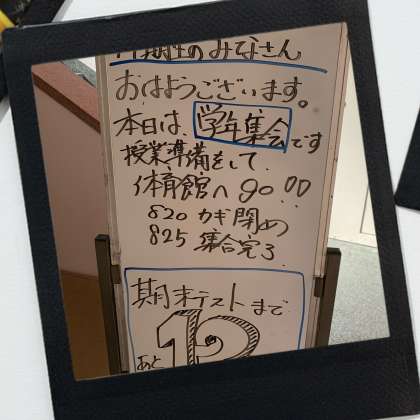 のみなさん
おはようございます。
本日は、学年集会です
授業準備をして、
体育館へ go!!
820 カギ閉め
825 集合完了
期末テストまで
あと